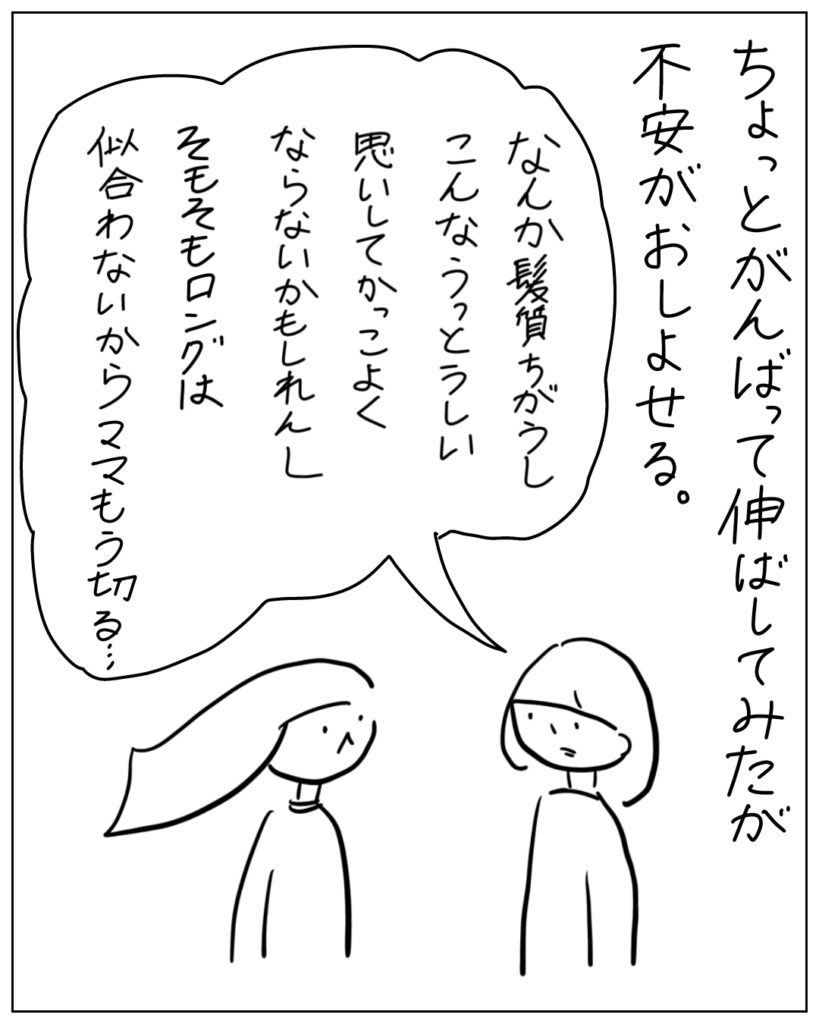 ちょっとがんばって伸ばしてみたが
不安がおしよせる。
なんか髪質ちがうし
こんなうっとうしい
思いしてかっこよく
ならないかもしれんし
そもそもロングは
似合わないからママもう切る…